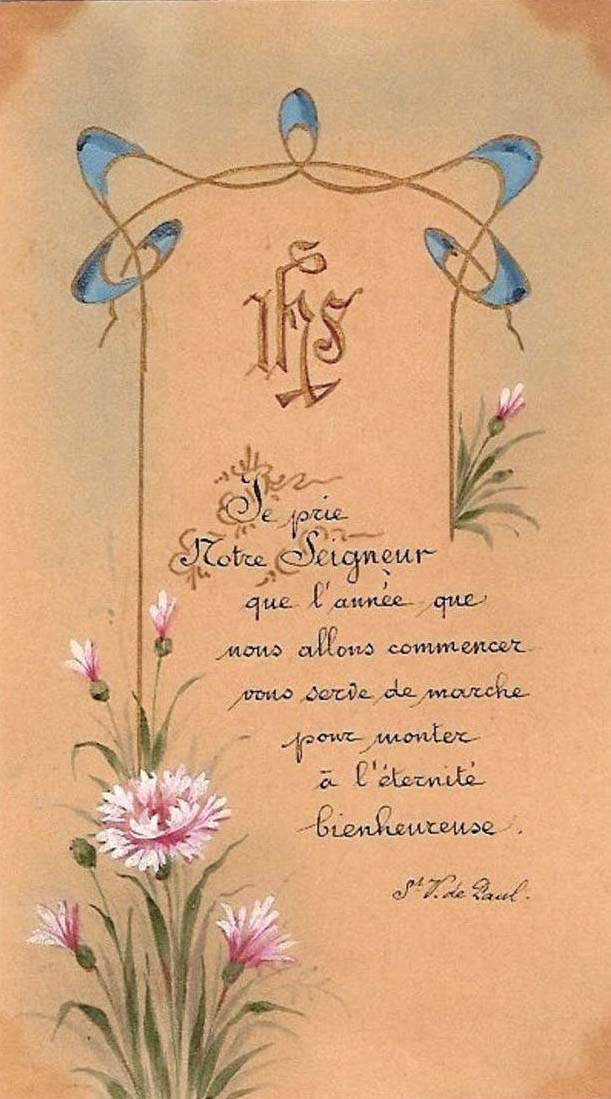 IHS
Je prie
Notre Seigneur
que l'année que
nous allons commencer
vous serve de marche
pour monter
à l'éternité
bienheureuse.
St V. de Paul.